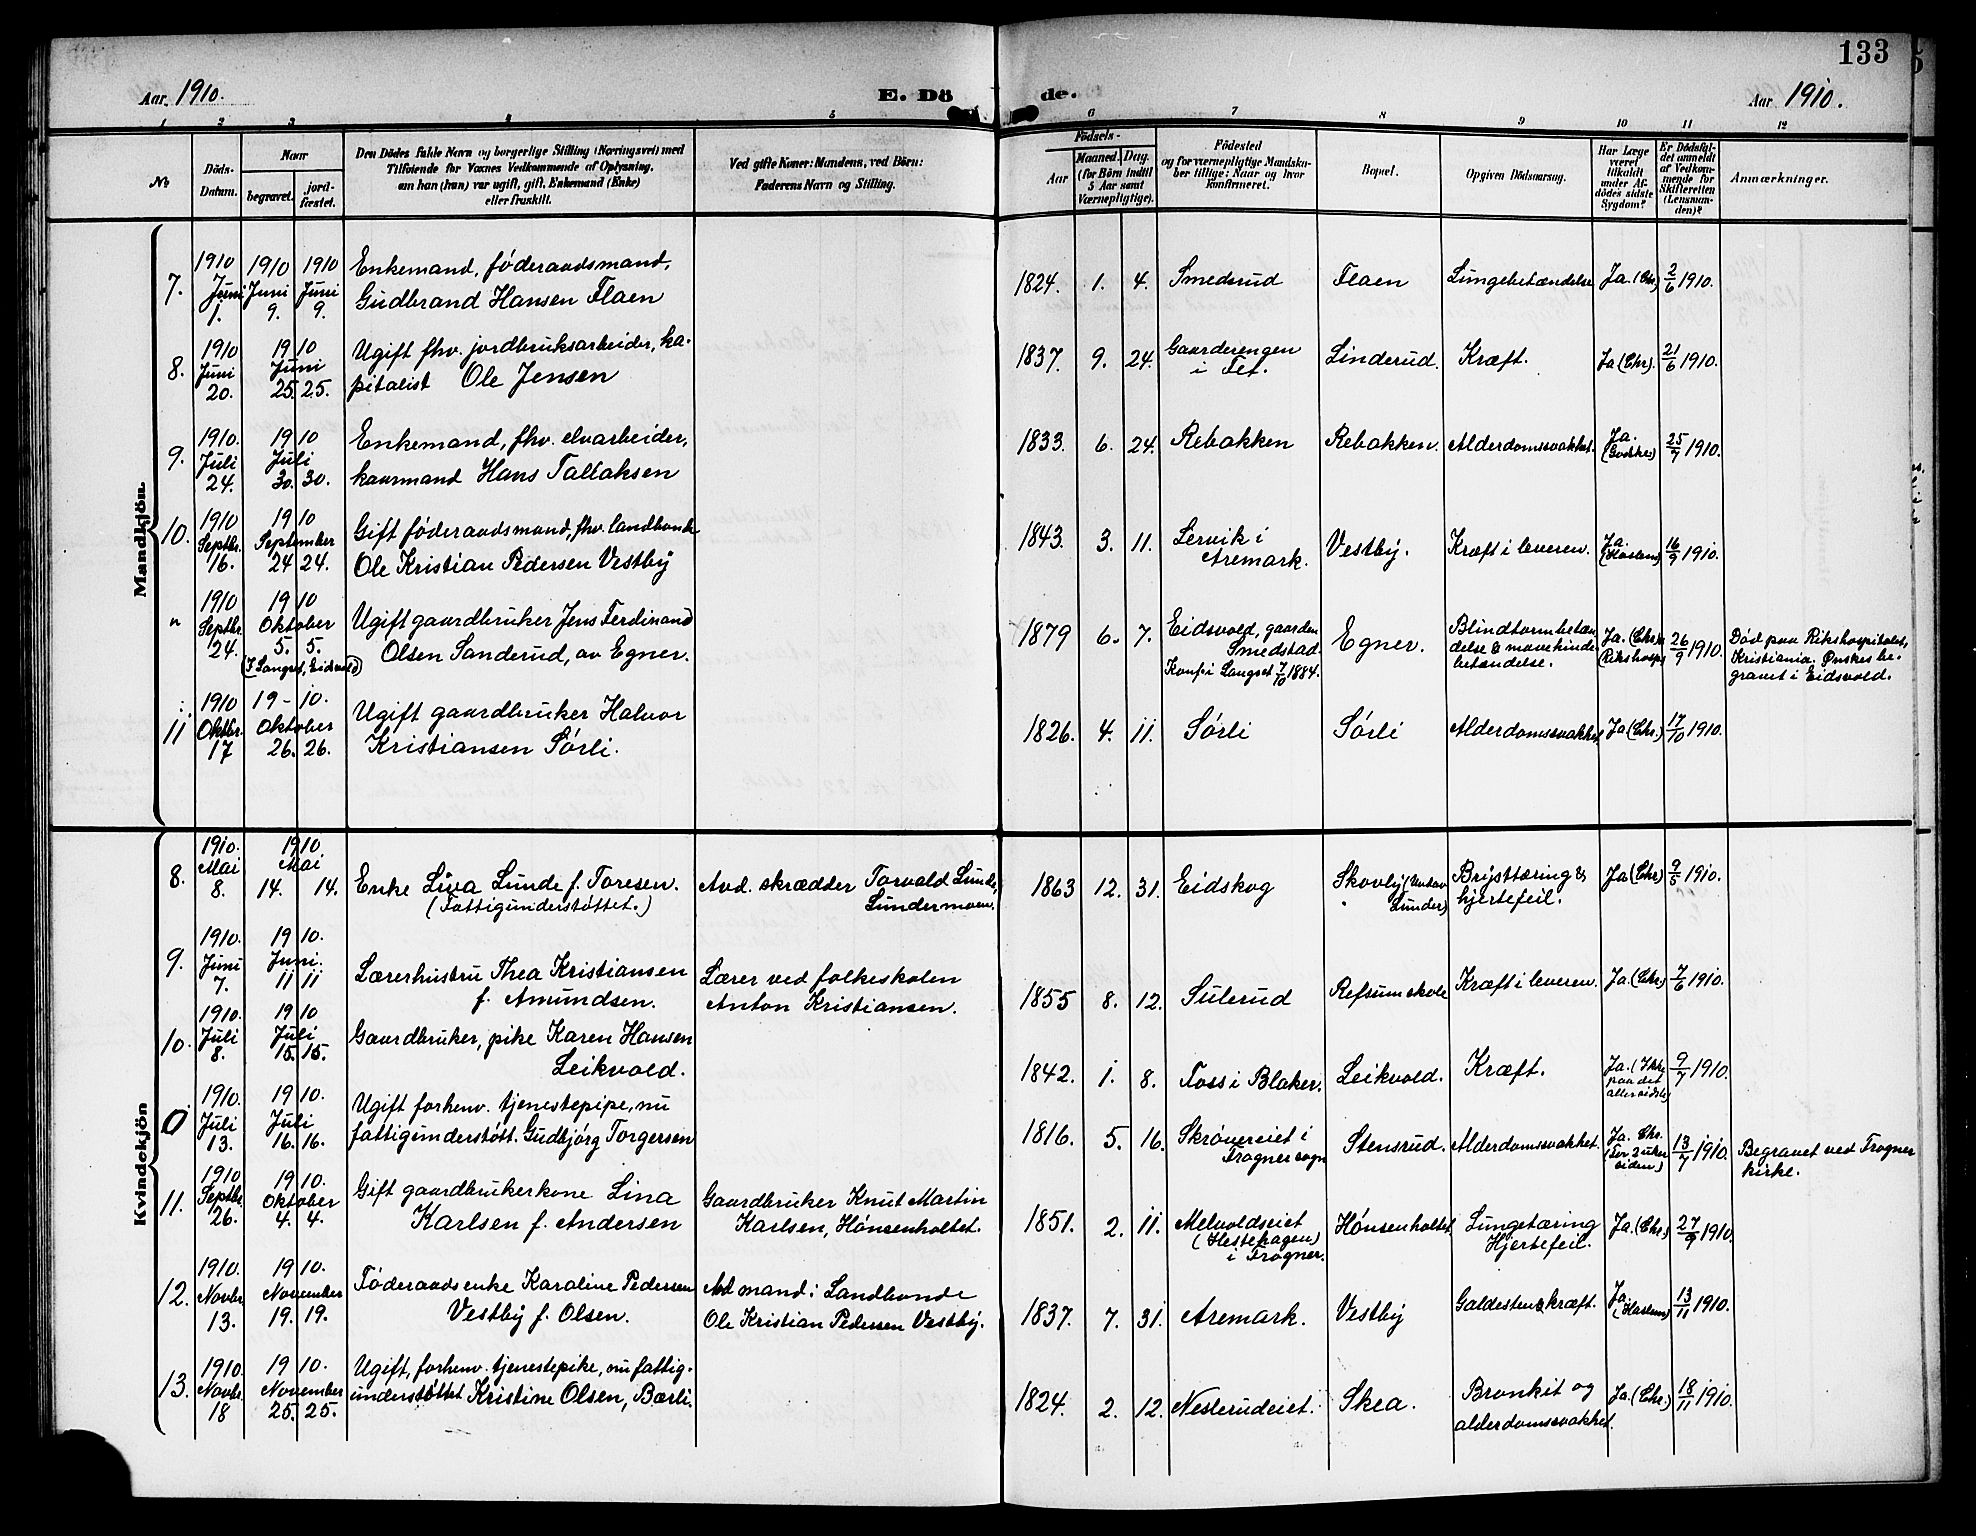 133
Aar 1910.
E. Dö
de.
Aar 1910.
1 2 3 4 5 6 7 8 9 10 11 12
No
Döds-Datum.
Naar
begravet.
jord-fæstet.
Den Dödes fulde Navn og borgerlige Stilling (Næringsvei) med
Tilföiende for Voxnes Vedkommende af Oplysning,
om han (hun) var ugift, gift, Enkemand (Enke)
eller fraskilt.
Ved gifte Koner: Mandens, ved Börn:
Faderens Navn og Stilling.
Födsels-
Aar
Maaned. Dag.
(for Börn indtil
5 Aar samt
Værnepligtige).
Födested
og for værnepligtige Mandska-
ber tillige: Naar og hvor
konfirmeret.
Bopæl.
Opgiven Dödsaarsag.
Har Læge
været
tilkaldt
under Af-
dödes sidste
Sygdom?
Er Dödsfal-
det anmeldt
af Vedkom-
mende for
Skifteretten
(Lensman-
den)?
Anmærkninger.
Mandkjön.
7.
1910 Juni 1.
1910 Juni 9.
1910 Juni 9.
Enkemand, föderaadsmand,
Gudbrand Hansen Flaen
1824. 1. 4.
Smedsrud
Flaen
Lungebetændelse
Ja. (Chr.)
2/6 1910.
8.
1910 Juni 20.
1910 Juni 25. 25.
Ugift fhv. jordbruksarbeider, ka-
pitalist Ole Jensen
1837. 9. 24.
Gaarderengen
i Fet.
Linderud.
Kræft.
Ja (Chr).
21/6 1910.
9.
1910. Juli 24.
1910 Juli 30. 30.
Enkemand, fhv. elvarbeider,
kaarmand Hans Tallaksen
1833. 6. 24.
Rebakken
Rebakken.
Alderdomssvakhet.
Ja.
25/7 1910.
10.
1910 Septbr. 16.
1910 September 24 24.
Gift föderaadsmand, fhv. landbonde
Ole Kristian Pedersen Vestby
1843. 3. 11.
Lervik i
Aremark.
Vestby.
Kræft i leveren.
Ja.
(Haslum)
16/9 1910.
"
1910 Septbr. 24.
1910 Oktober 5. 5.
(I Langset, Eidsvold)
Ugift gaardbruker Jens Ferdinand
Olsen Sanderud, av Egner.
1879 6. 7.
Eidsvold, gaarden
Smedstad.
Konf. i Langset 7/10 1884.
Egner.
Blindtarmbetæn
delse & mavehinde
betændelse.
Ja. (Chr.)
(Rikshosp)
26/9 1910.
Död paa Rikshospitalet,
Kristiania. Ønskes be-
gravet i Eidsvold.
11
1910 Oktbr. 17
19-10. Oktober 26. 26.
Ugift gaardbruker Halvor
Kristiansen Sörli.
1826. 4. 11.
Sörli
Sörli
Alderdomssvakhet.
Ja (Chr.)
17/10 1910.
Kvindekjön
8.
1910. Mai 8.
1910 Mai 14. 14.
Enke Liva Lunde f. Toresen.
(Fattigunderstöttet.)
Avd. skrædder Torvald Lunde,
Lundermoen.
1863 12. 31.
Eidskog
Skovly (under
Lunder)
Brysttæring &
hjertefeil.
Ja (Chr)
9/5 1910.
9.
1910. Juni 7.
1910. Juni. 11 11
Lærerhustru Thea Kristiansen
f. Amundsen.
Lærer ved folkeskolen
Anton Kristiansen.
1855 8. 12.
Sulerud
Refsum skole
Kræft i leveren.
Ja. (Chr)
7/6 1910.
10.
1910. Juli 8.
1910 Juli 15. 15.
Gaardbruker, pike Karen Hansen
Leikvold.
1842. 1. 8.
Foss i Blaker.
Leikvold.
Kræft.
Ja. (Ikke
paa det
aller sidste)
9/7 1910.
0
1910. Juli 13.
1910. Juli 16. 16.
Ugift forhenv. tjenestepipe, nu
fattigunderstött. Gudbjörg Torgersen
1816. 5. 16.
Skrövereiet i
Frogner sogn
Stensrud.
Alderdomssvakhet.
Ja. Chr.
(For 2 uker
siden)
13/7 1910.
Begravet ved Frogner
kirke.
11.
1910 Septbr. 26.
1910. Oktober 4. 4.
Gift gaardbrukerkone Lina
Karlsen f. Andersen
Gaardbruker Knut Martin
Karlsen, Hönsenholtet.
1851. 2. 11.
Melvoldseiet
(Hestehagen)
i Frogner.
Hönsenholtet
Lungetæring
Hjertefeil.
Ja. (Chr.)
27/9 1910.
12.
1910. Novbr. 13.
1910. November 19. 19.
Föderaadsenke Karoline Pedersen
Vestby f. Olsen.
Avd mand: Landbonde
Ole Kristian Pedersen Vestby.
1837. 7. 31.
Aremark.
Vestby
Galdesten & kræft.
Ja.
(Haslum)
13/11 1910.
13.
1910. Novbr. 18
1910. November 25. 25.
Ugift, forhenv. tjenestepike, nu fattig-
understöttet Kristine Olsen, Bærli.
1824. 2. 12.
Nesterudeiet.
Skea.
Bronkit og
alderdomssvakhet.
Ja. (Chr.)
18/11 1910.